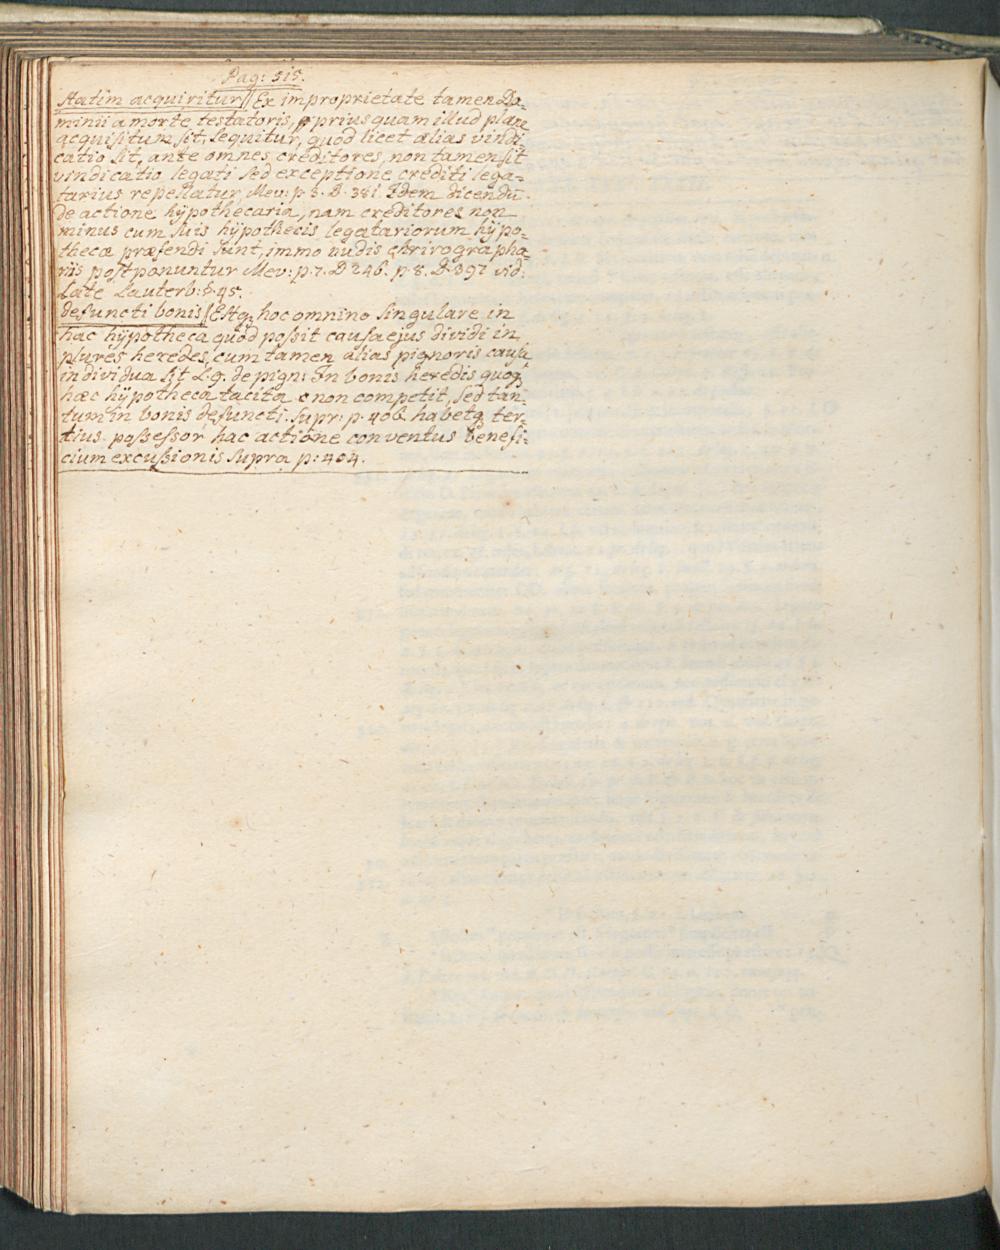 Pag: 515.
statim acquiritur // Ex improprietate tamen Do-
minii a morte testatoris, priusquam illud plane
acquisitum sit, sequitur, quod licet alias vindi-
catio sit, ante omnes creditores, non tamen sit
vindicatio legati sed exceptione crediti lega-
tarius repellatur, Mev: p 3. D. 381. Idem dicendū
de actione hÿpothecaria, nam creditores non
minus cum suis hÿpothecis legatariorum hÿpo-
thecæ præferendi sunt, immo nudis chirographa-
riis postponuntur Mev: p. 7. D 246. p. 8. D. 397 vid:
late Lauterb: §. 45.
defuncti bonis // Estq; hoc omnino singulare in
hac hÿpotheca quod possit causa ejus dividi in
plures heredes, cum tamen alias pignoris causa
individua sit L. 9. de pign: In bonis heredis quoq;
hæc hÿpotheca tacita non competit, sed tan-
tum in bonis defuncti. supr: p. 406 habetq; ter-
tius possessor hac actione conventus benefi-
cium excussionis supra p: 404.